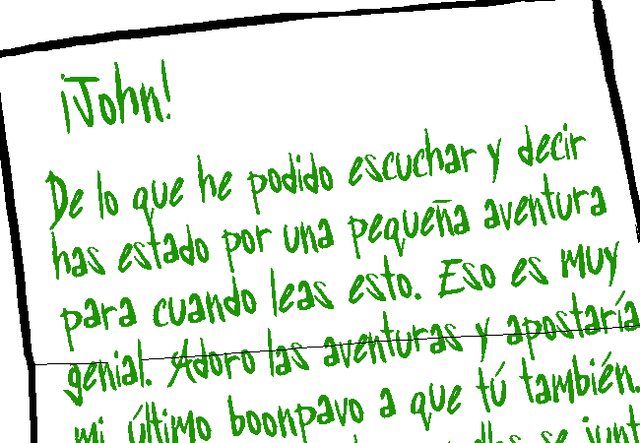 ¡John!
De lo que he podido escuchar y decir
has estado por una pequeña aventura
para cuando leas esto. Eso es muy
genial. Adoro las aventuras y apostaría
mi último boonpavo a que tú también.
se